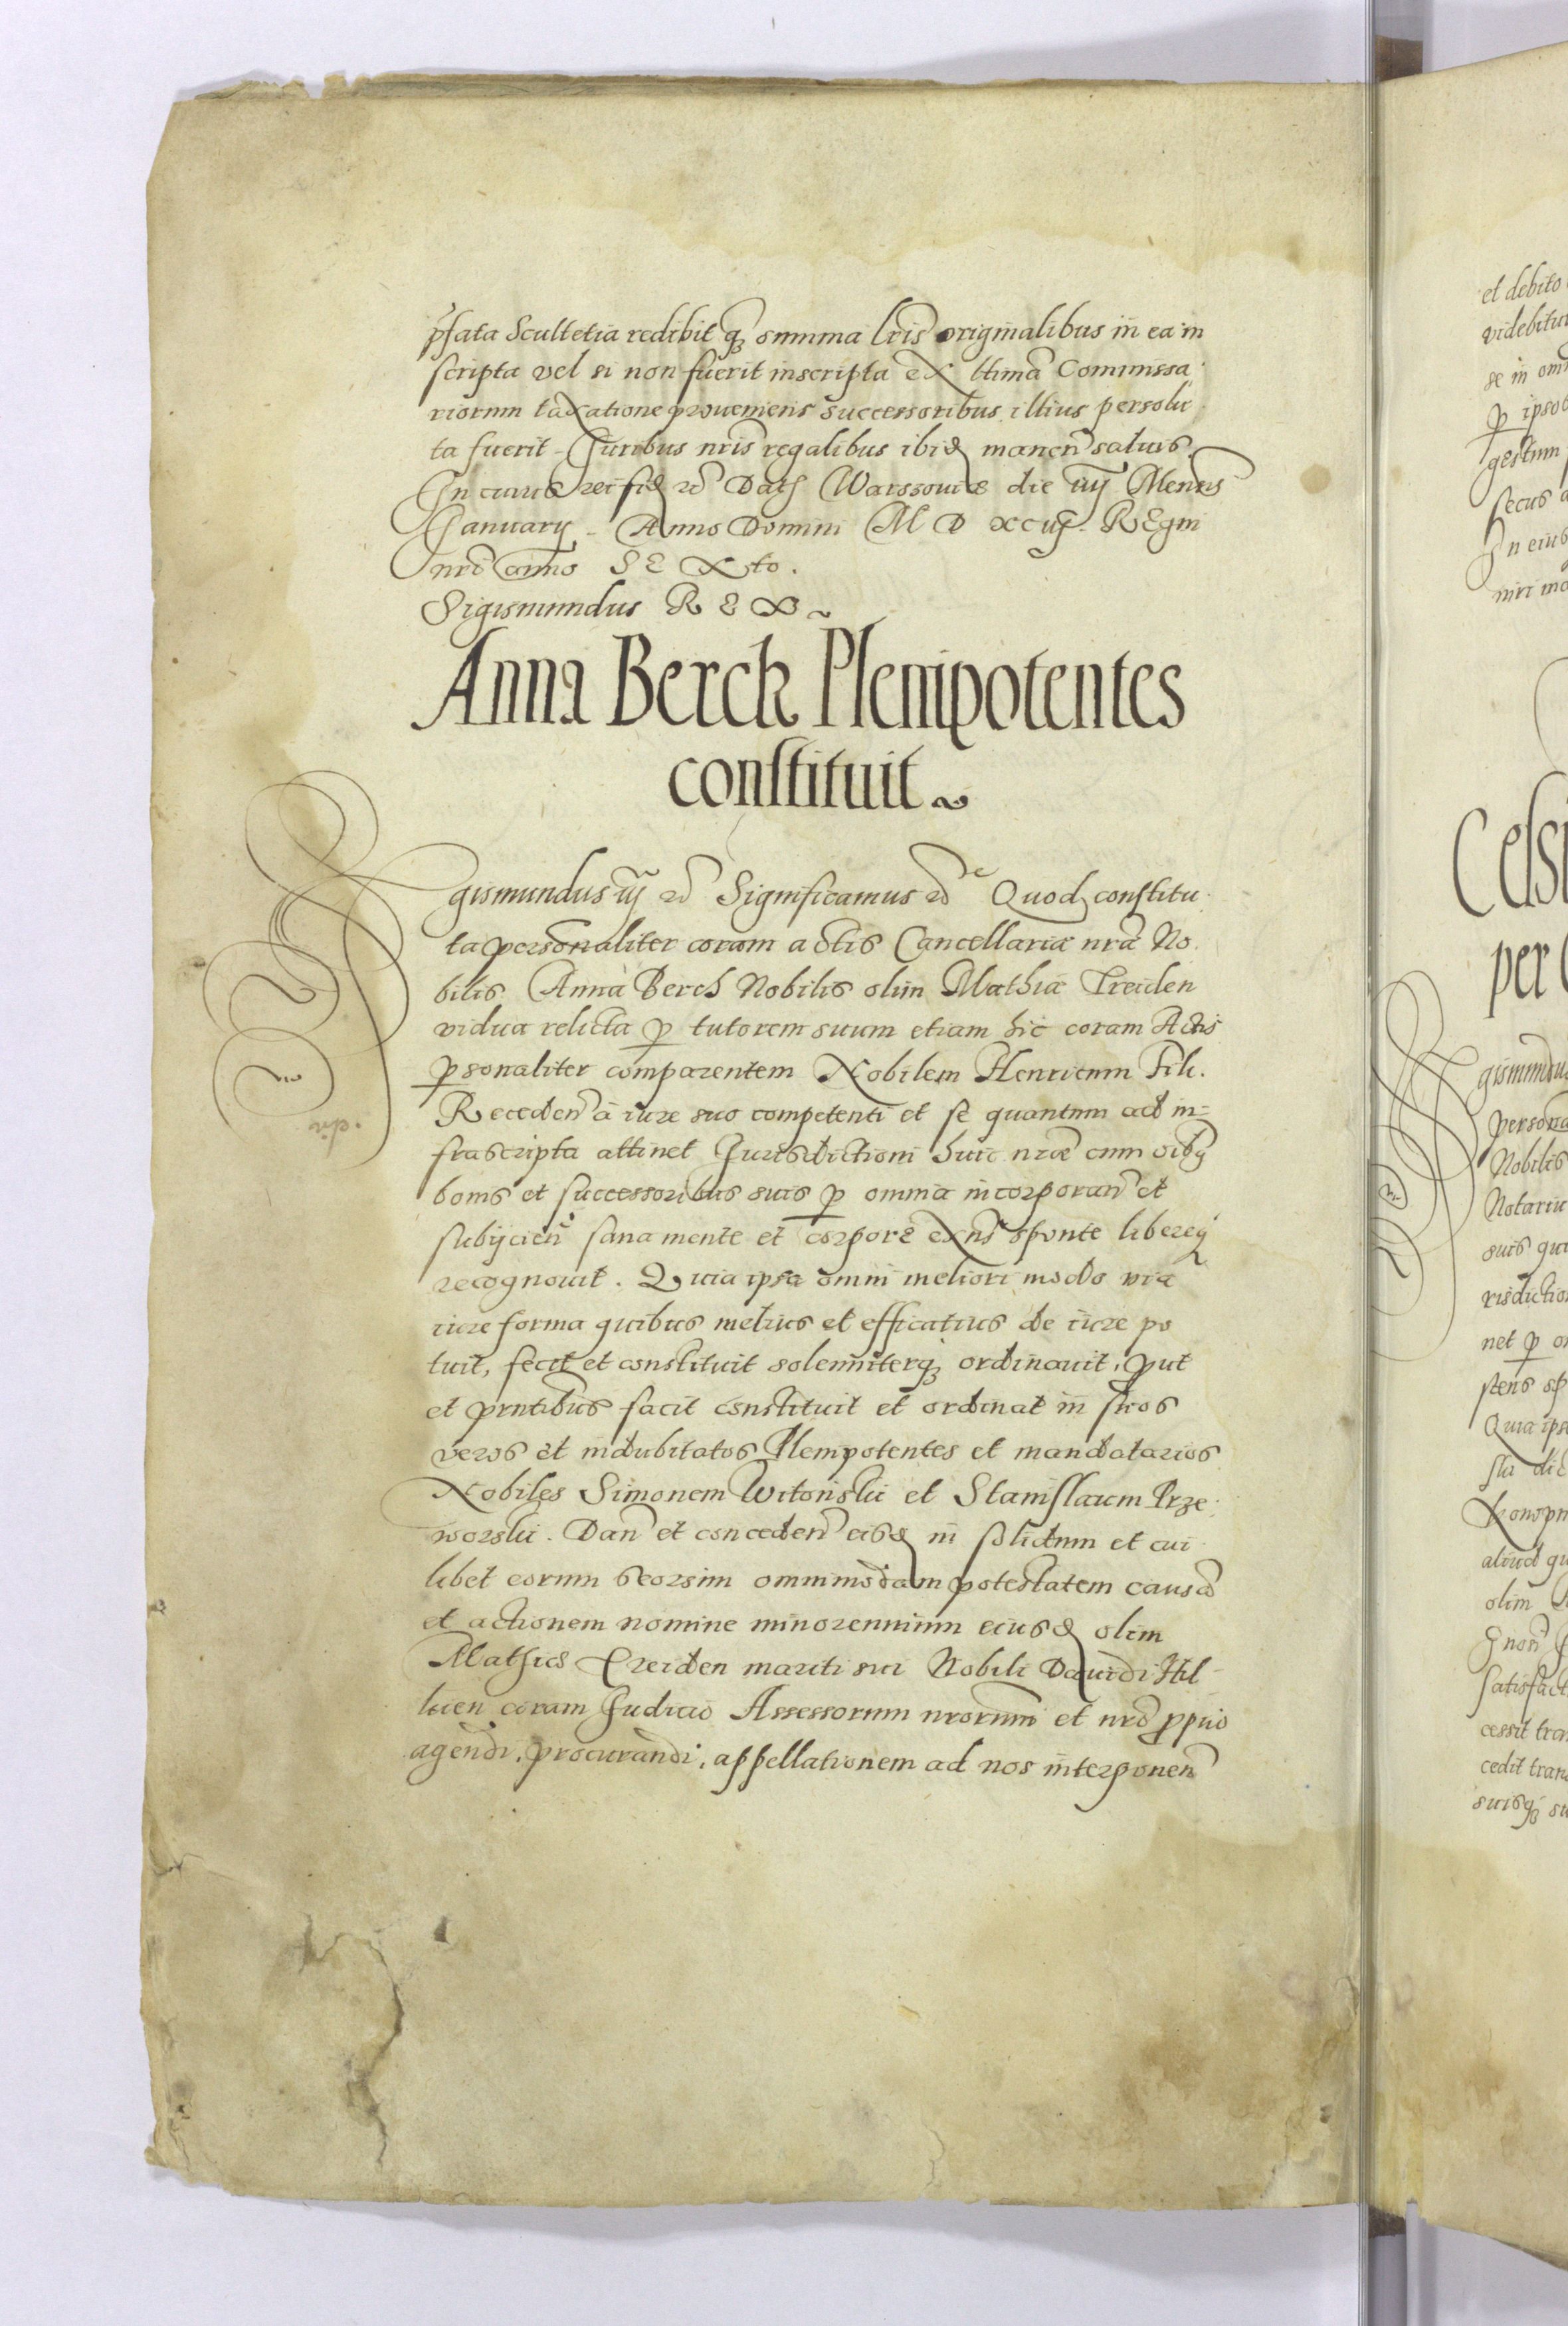 p̃fata Scultetia redibit q̃ summa lr̃is originalibus in ea in
scripta vel si non fuerit inscripta ex ltima Commissa
riorum taxatione proueniens successoribus illius persolu
ta fuerit. Juribus nr̃is regalibus ibid manen̄ saluis
In cuius rei fid etc̃ Dat Warssouiæ die iiij Mensis
January. Anno Domini M D xciij. REgni
nr̃i anno SEXto.
Sigismundus REX
Anna Berck Plenipotentes
constituit
Sigismundus iij etc̃ Significamus etc̃ Quod constitu
ta personaliter coram actis Cancellariæ nr̃æ No
bilis Anna Berch Nobilis olim Mathiæ Treiden
vidua relicta ꝑ tutorem suum etiam hic coram Actis
ꝑsonaliter comparentem Nobilem Henricum Filt.
Receden̄ à iure suo competenti et se quantum ad in=
frascripta attinet Jurisdictioni huic nr̃æ cum oibꝰ
bonis et successoribus suis ꝑ omnia incorporan̄ et
subijcien̄ sana mente et corpore exn̄s sponte libereq̃
recognouit. Quia ipsa omni meliori modo via
iure forma quibus melius et efficatius de iure po
tuit, fecit et constituit solenniterq̃ ordinauit, prout
et prñtibus facit constituit et ordinat in suos
veros et indubitatos Plenipotentes et mandatarios
Nobiles Simonem Witonski et Stanislaum Prze
worski. Dan̄ et conceden̄ eisd in solidum et cui
libet eorum seorsim omnimodam potestatem causā
et actionem nomine minorennium eiusd olim
Mathiæ Treiden mariti sui Nobili Dauidi Hil-
ken coram Judicio Assessorum nr̃orum et nr̃o ꝓprio
agendi, procurandi, appellationem ad nos interponen̄
et debito
videbitur
se in om
ꝑ ipsos
gestum
secus a
In eius
niri ma
Celsi
per
gismundus
persona
Nobilis
Notariu
suis qu
risdictio
net ꝑ o
stens sp
Quia ips
sta di
aliud qu
olim
satisfact
cessit tran
cedit tran
suisq̃ su